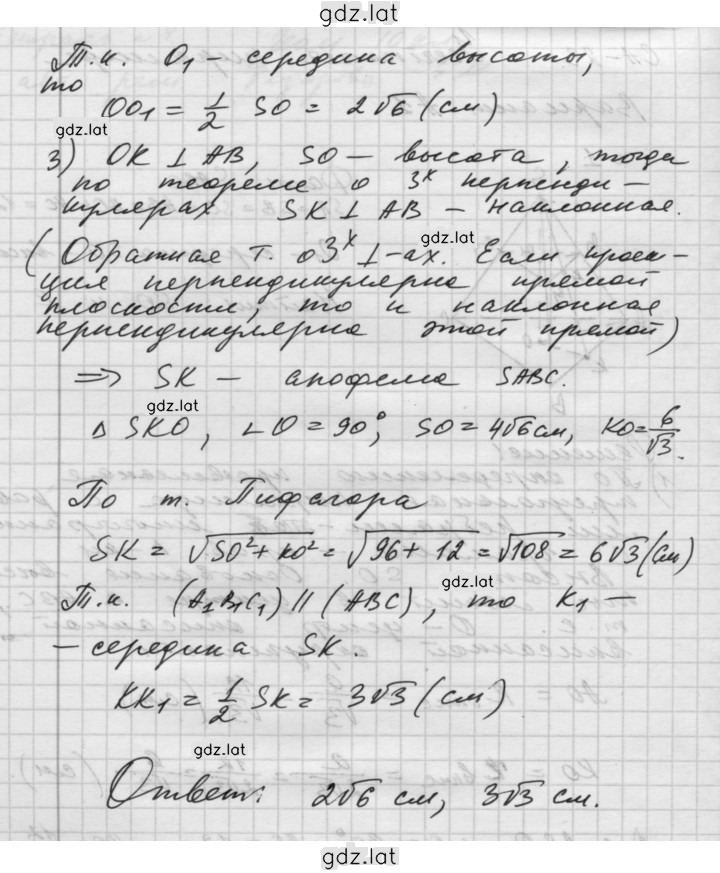 gdz.lat
Т.к. O₁ – середина высоты,
то
OO₁ = 1/2 SO = 2√6 (см)
gdz.lat
3) OK ⊥ AB, SO – высота, тогда
по теореме о 3ˣ перпенди –
кулярах SK ⊥ AB – наклонная.
gdz.lat
(Обратная т. о 3ˣ ⊥-ах. Если проек –
ция перпендикулярна прямой
плоскости, то и наклонная
перпендикулярна этой прямой)
⇒ SK – апофема SABC.
gdz.lat
△ SKO, ∠O = 90°, SO = 4√6 см, KO = 6/√3.
По т. Пифагора
SK = √SO² + KO² = √96 + 12 = √108 = 6√3 (см)
gdz.lat
Т.к. (A₁B₁C₁) || (ABC), то K₁ –
– середина SK.
KK₁ = 1/2 SK = 3√3 (см)
gdz.lat
Ответ: 2√6 см, 3√3 см.
gdz.lat